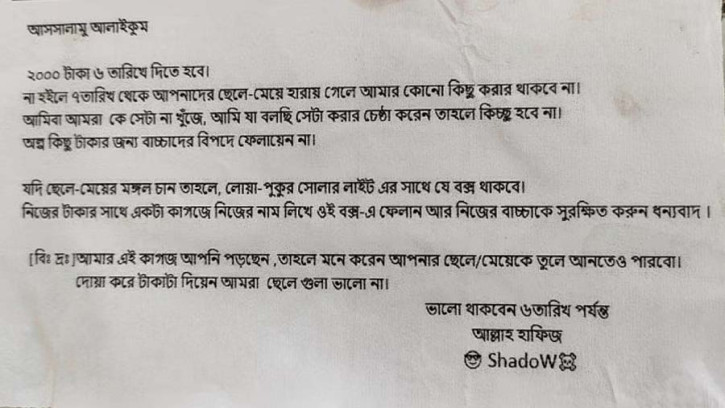 আসসালামু আলাইকুম
২০০০ টাকা ৬ তারিখে দিতে হবে।
না হইলে ৭তারিখ থেকে আপনাদের ছেলে-মেয়ে হারায় গেলে আমার কোনো কিছু করার থাকবে না।
আমিবা আমরা কে সেটা না খুঁজে, আমি যা বলছি সেটা করার চেষ্ঠা করেন তাহলে কিচ্ছু হবে না।
অল্প কিছু টাকার জন্য বাচ্চাদের বিপদে ফেলায়েন না।
যদি ছেলে-মেয়ের মঙ্গল চান তাহলে, লোয়া-পুকুর সোলার লাইট এর সাথে যে বক্স থাকবে।
নিজের টাকার সাথে একটা কাগজে নিজের নাম লিখে ওই বক্স-এ ফেলান আর নিজের বাচ্চাকে সুরক্ষিত করুন ধন্যবাদ ।
[বিঃ দ্রঃ]আমার এই কাগজ আপনি পড়ছেন ,তাহলে মনে করেন আপনার ছেলে/মেয়েকে তুলে আনতেও পারবো।
দোয়া করে টাকাটা দিয়েন আমরা ছেলে গুলা ভালো না।
ভালো থাকবেন ৬তারিখ পর্যন্ত
আল্লাহ হাফিজ
ShadoW